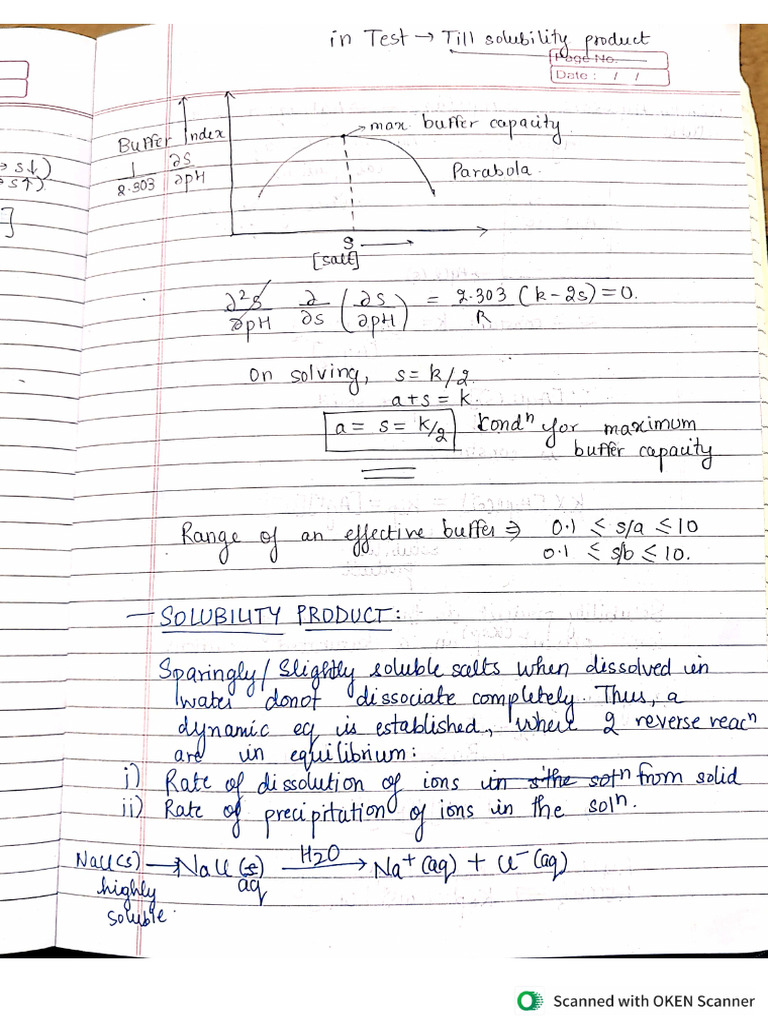 in Test → Till solubility product
Page No.
Date : / /
→ s↓)
→ s↑)
]
Buffer Index
1/2.303 ∂S/∂pH
max buffer capacity
Parabola.
S →
[salt]
∂²S/∂pH ∂/∂S (∂S/∂pH) = 2.303/R (k - 2s) = 0.
On solving, s = k/2.
a + s = k.
a = s = k/2 Condⁿ for maximum
buffer capacity
Range of an effective buffer ⇒ 0.1 ≤ s/a ≤ 10
0.1 ≤ s/b ≤ 10.
- SOLUBILITY PRODUCT:
Sparingly/Slightly soluble salts when dissolved in
water donot dissociate completely. Thus, a
dynamic eq is established, where 2 reverse reacⁿ
are in equilibrium:
i) Rate of dissolution of ions in the solⁿ from solid
ii) Rate of precipitation of ions in the solⁿ.
NaCl(s) → NaCl (s) H2O → Na⁺(aq) + Cl⁻(aq)
highly aq
soluble.
Scanned with OKEN Scanner